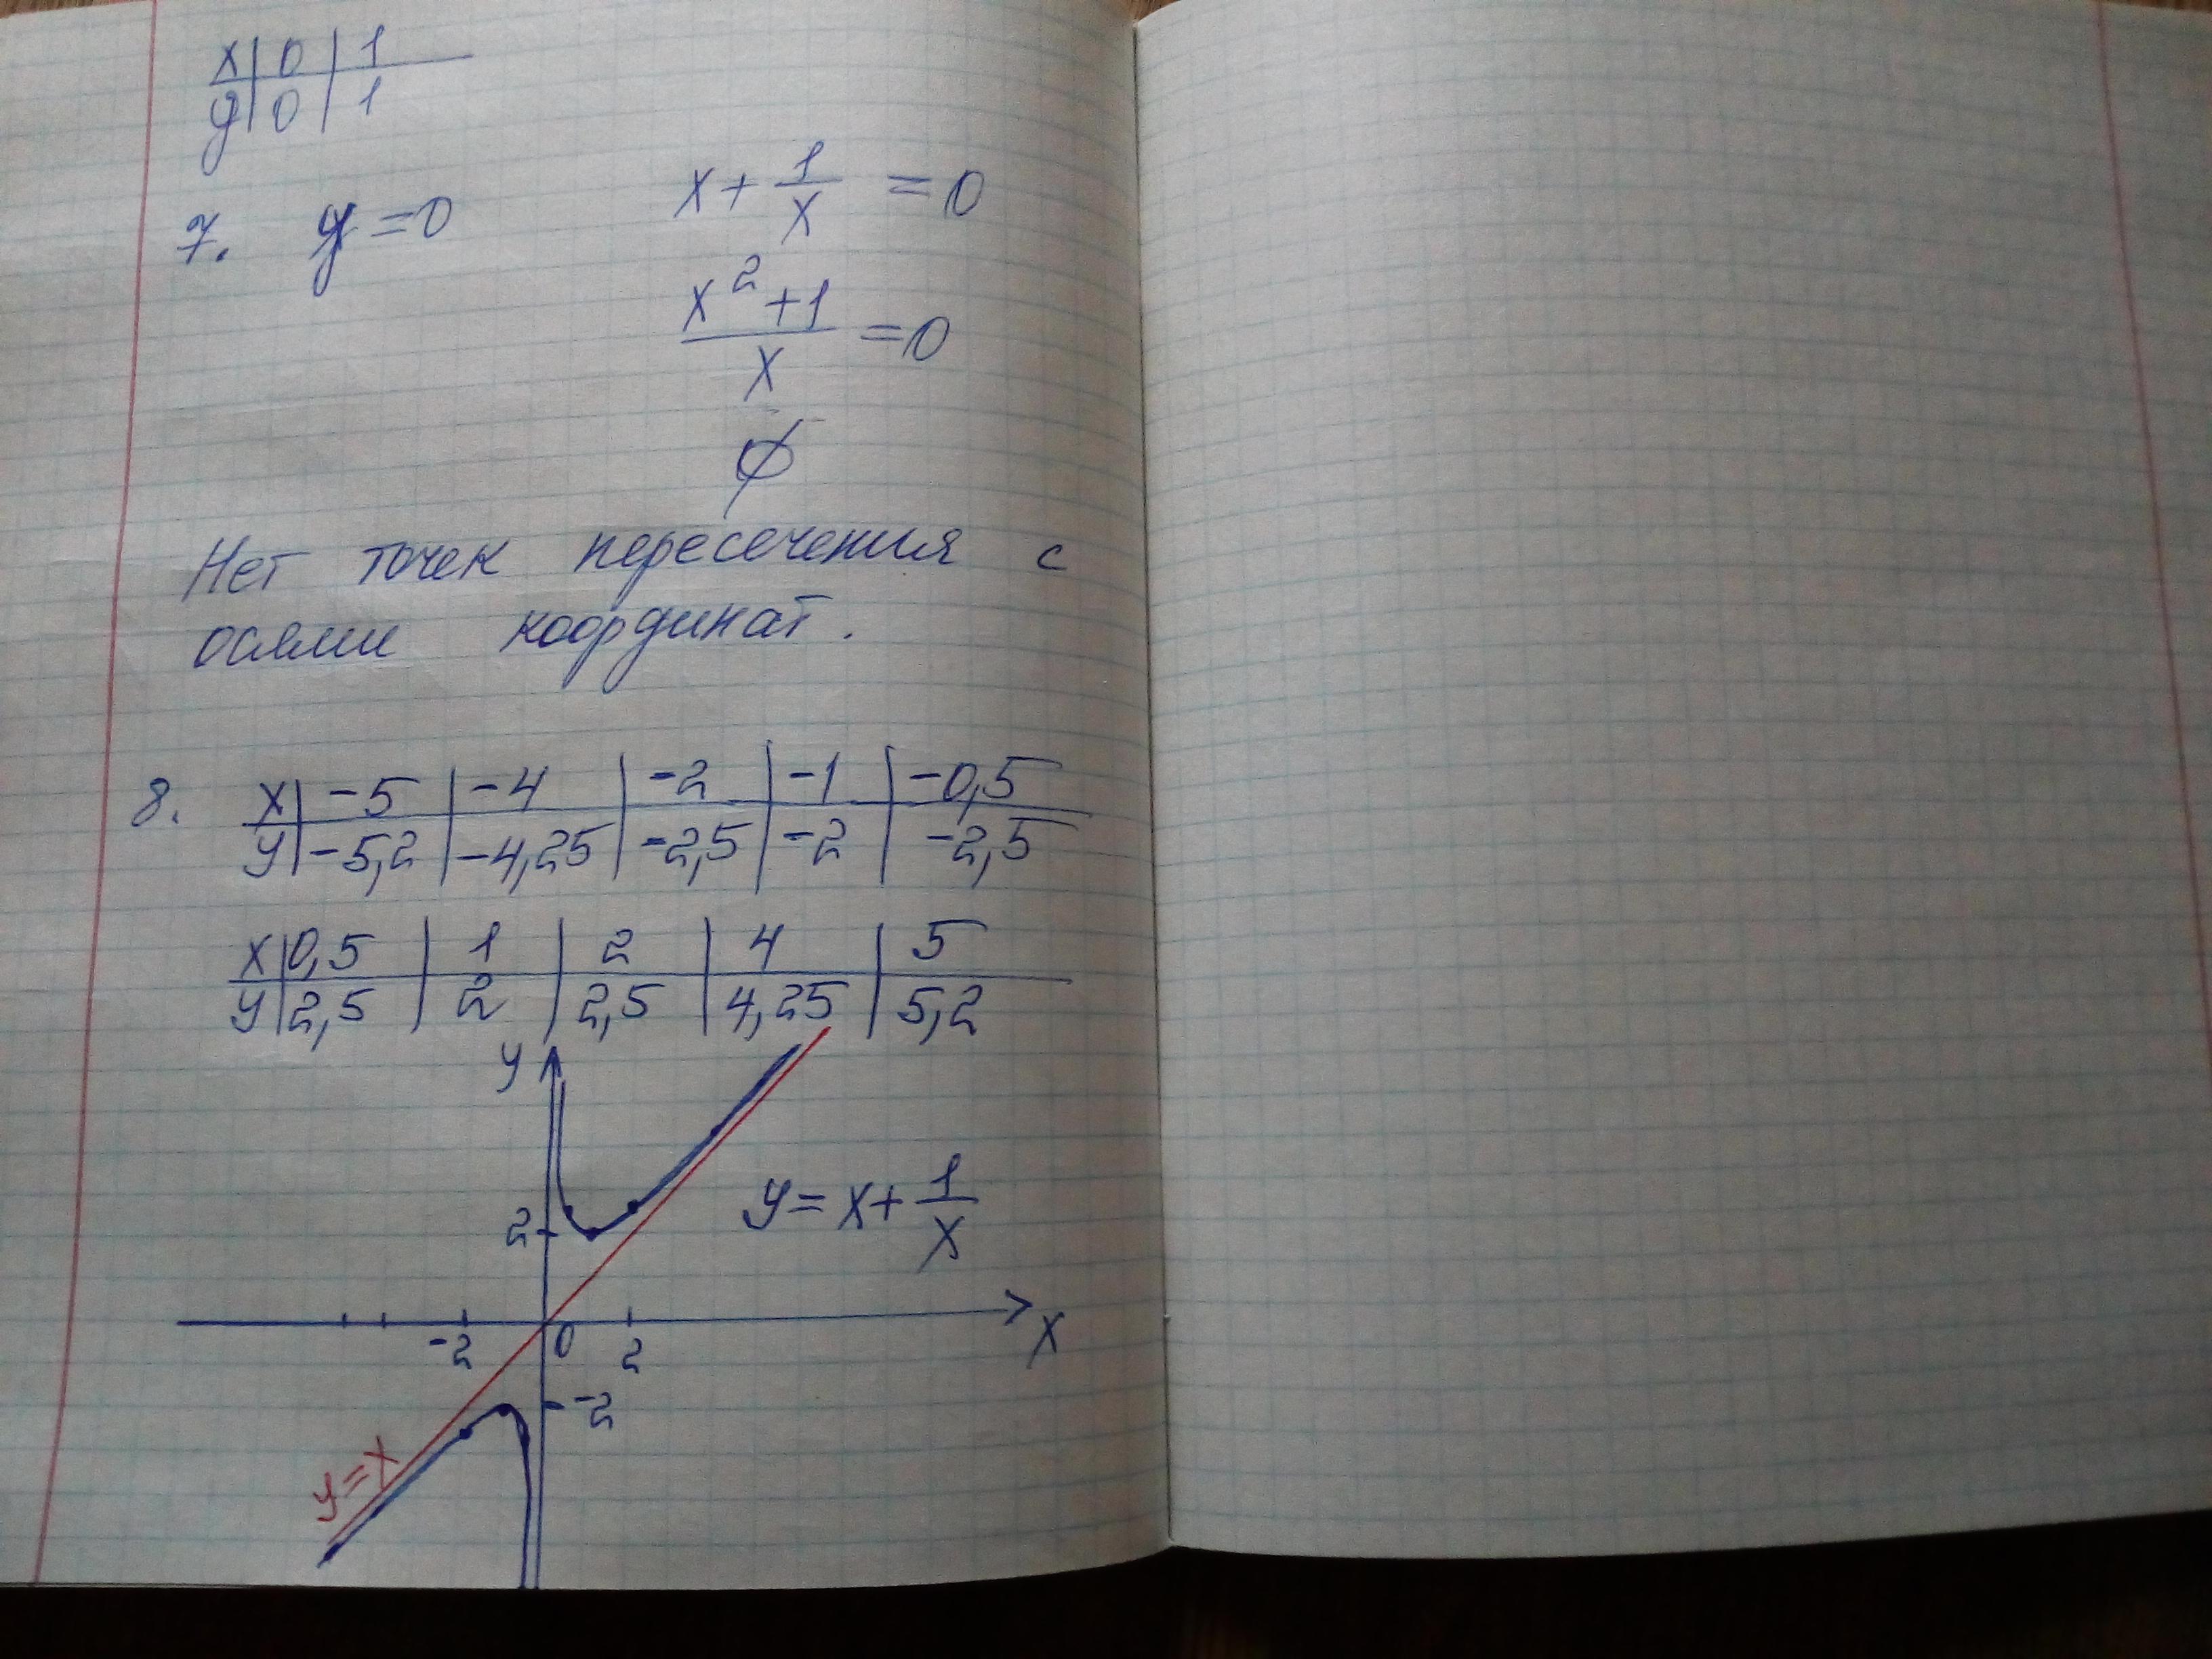 x | 0 | 1
y | 0 | 1
7. y = 0
x + 1/x = 0
(x² + 1)/x = 0
∅
Нет точек пересечения с
осями координат.
8. x | -5 | -4 | -2 | -1 | -0,5
y | -5,2 | -4,25 | -2,5 | -2 | -2,5
x | 0,5 | 1 | 2 | 4 | 5
y | 2,5 | 2 | 2,5 | 4,25 | 5,2
y
y = x + 1/x
2
-2 0 2 x
-2
y = x